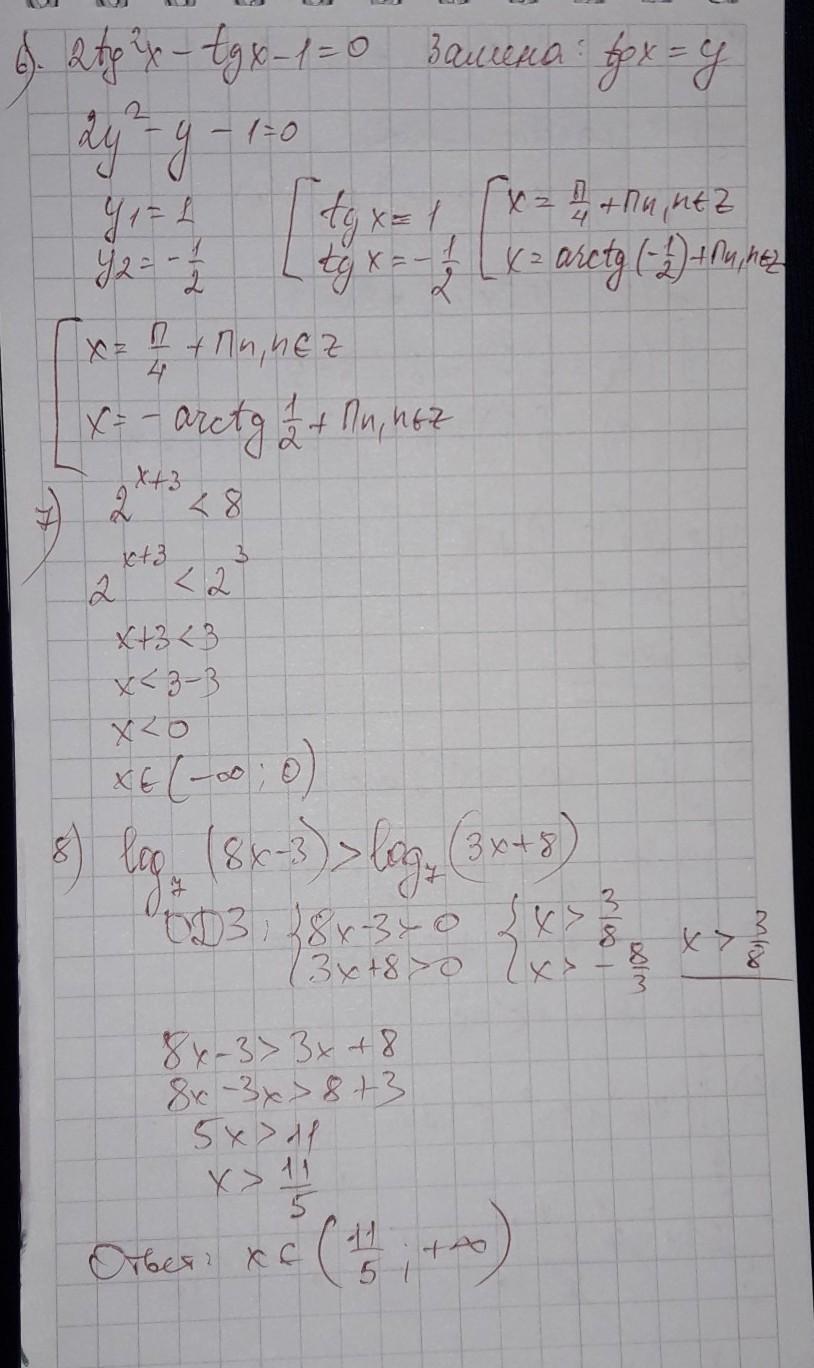 6). 2tg²x - tgx - 1 = 0 Замена: tgx = y
2y² - y - 1 = 0
y₁ = 1 [ tg x = 1 [ x = π/4 + πn, n∈Z
y₂ = -1/2 tg x = -1/2 x = arctg(-1/2) + πn, n∈Z
[ x = π/4 + πn, n∈Z
x = - arctg 1/2 + πn, n∈Z
7) 2^(x+3) < 8
2^(x+3) < 2³
x+3 < 3
x < 3-3
x < 0
x∈(-∞; 0)
8) log₇(8x-3) > log₇(3x+8)
ОДЗ: { 8x-3 > 0 { x > 3/8 x > 3/8
3x+8 > 0 x > -8/3
8x-3 > 3x+8
8x-3x > 8+3
5x > 11
x > 11/5
Ответ: x∈(11/5; +∞)